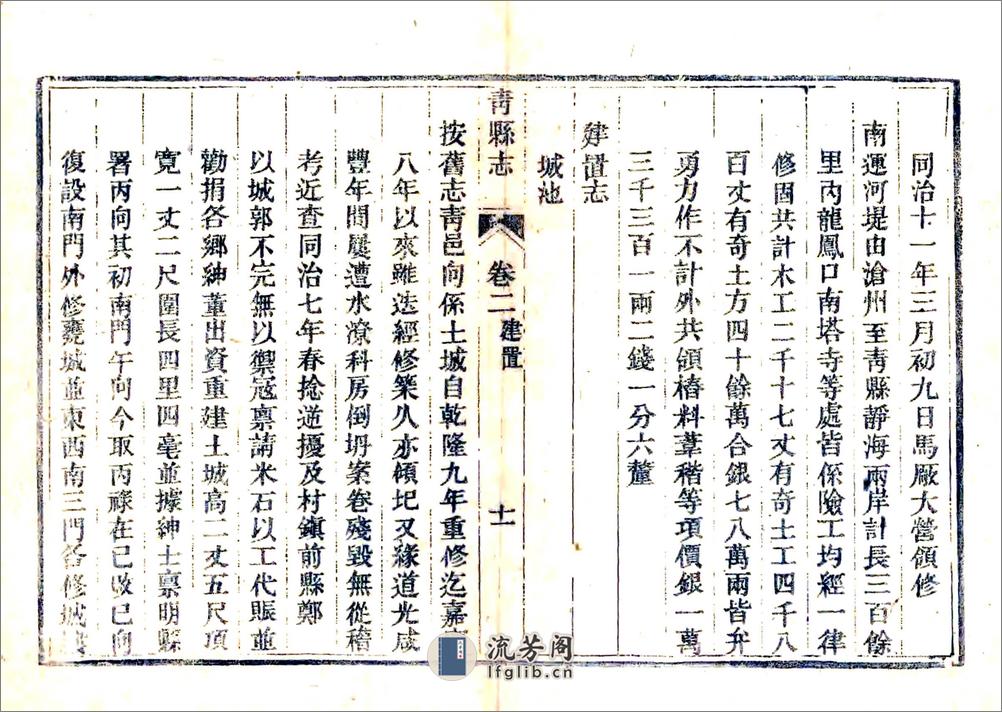 同治十一年三月初九日馬厰大營領修
南運河堤由滄州至靑縣靜海兩岸計長三百餘
里內龍鳳口南塔寺等處皆係險工均經一律
修固共計木工二千十七丈有奇士工四千八
百丈有奇土方四十餘萬合銀七八萬兩皆弁
勇力作不計外共領樁料葦稭等項價銀一萬
三千三百一兩二錢一分六釐
建置志
城池
靑縣志
卷二
建置
十一
按舊志靑邑向係土城自乾隆九年重修迄嘉
八年以來雖迭經修築久亦傾圮又緣道光咸
豐年間屢遭水潦科房倒坍案卷殘毀無從稽
考近查同治七年春捻逆擾及村鎭前縣鄭
以城郭不完無以禦寇稟請米石以工代賑並
勸捐各鄉紳董出資重建土城高二丈五尺頂
寬一丈二尺圍長四里四毫並據紳士稟明縣
署丙向其初南門午向今取丙祿在巳改巳向
復設南門外修甕城並東西南三門各修城
流芳阁
lfglib.cn